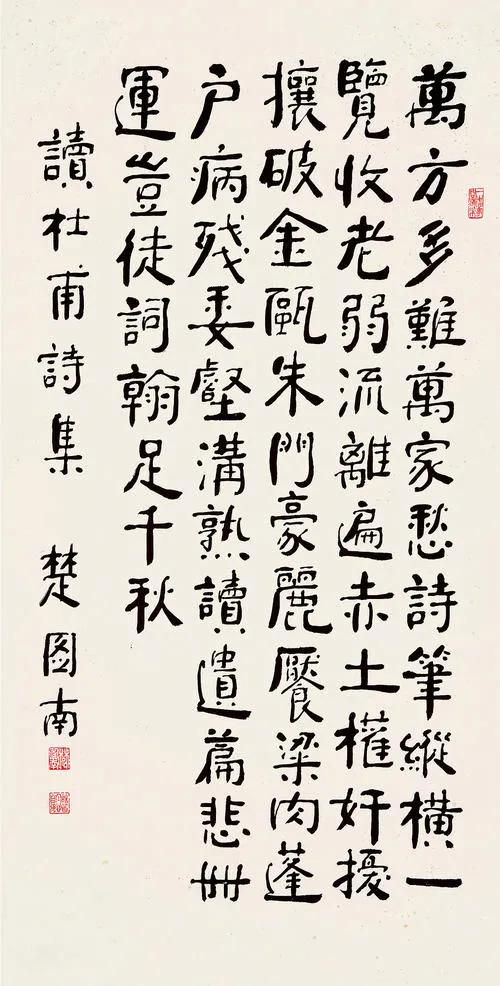 萬方多難萬家愁詩筆縱橫一
覽收老弱流離遍赤土權奸擾
攘破金甌朱門豪麗饜梁肉蓬
户病殘委壑溝熟讀遺篇悲世
運豈徒詞翰足千秋
讀杜甫詩集 楚图南